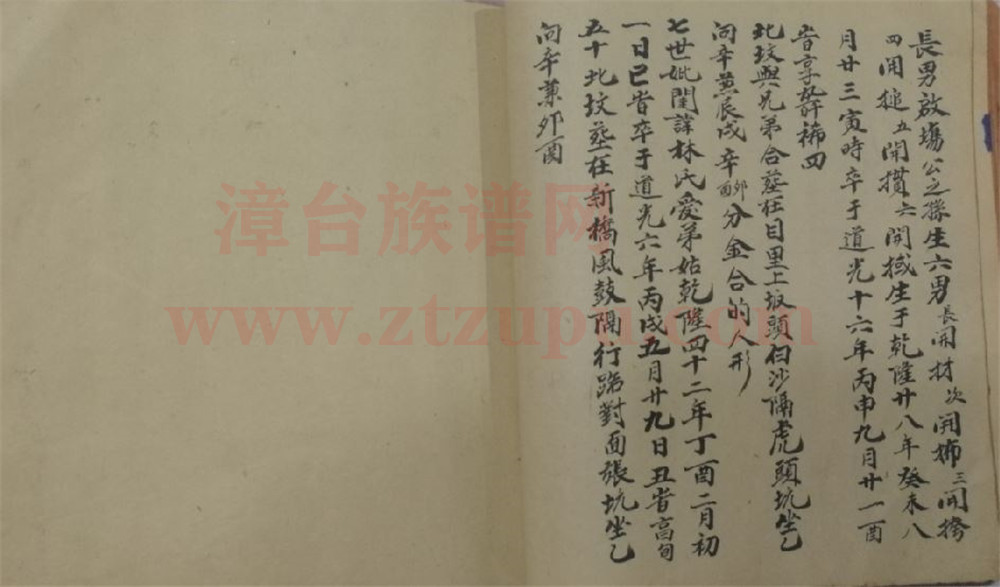 長男啟塲公之孫生六男長開材次開柹三開搀
四開搥五開摜六開掝生于乾隆廿八年癸未八
月廿三寅時卒于道光十六年丙申九月廿一酉
旹享
北坟與兄弟合葬在目里上坂頭白沙隔虎頭坑坐乙
向辛兼辰戌辛卯辛酉分金合的人形
七世妣閨諱林氏愛弟姑乾隆四十二年丁酉二月初
一日巳旹卒于道光六年丙戌五月廿九日丑旹高旬
五十北坟葬在新橋風鼓隔行路對面張坑坐乙
向辛兼卯酉
漳台族谱网
www.ztzupu.com